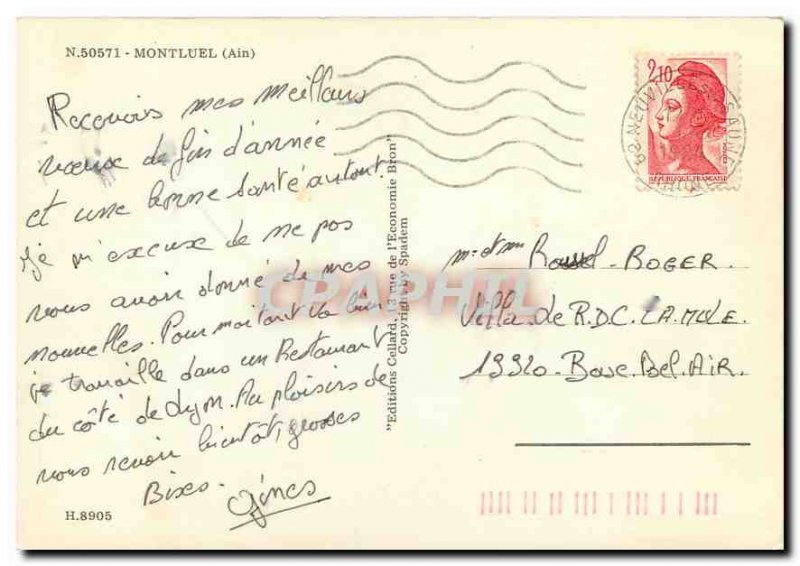 N.50571 - MONTLUEL (Ain)
Recevois mes meilleurs
voeux de fin d'année
et une bonne santé surtout.
Je m'excuse de ne pas
vous avoir donné de mes
nouvelles. Pour maitant va bien
je travaille dans un Restaurant
du côté de Lyon. Au plaisirs de
vous revoir bientôt, grosses
Bises.
H.8905
"Editions Cellard, 13 rue de l'Economie Bron"
Copyright by Spadem
2,10
REPUBLIQUE FRANCAISE
m. et mme ROGER.
Villa de R.D.C. LA MULE.
13320. Bouc Bel AIR.
CPAPHIL